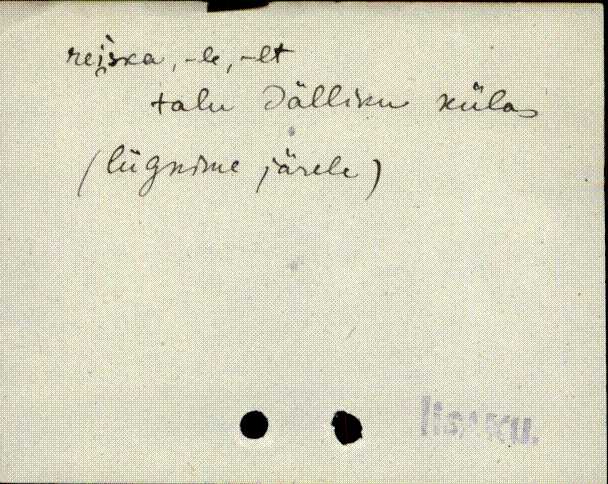 rei̬ska, -le, -lt
talu Jälliku külas
(liignime järele)
Iisaku.